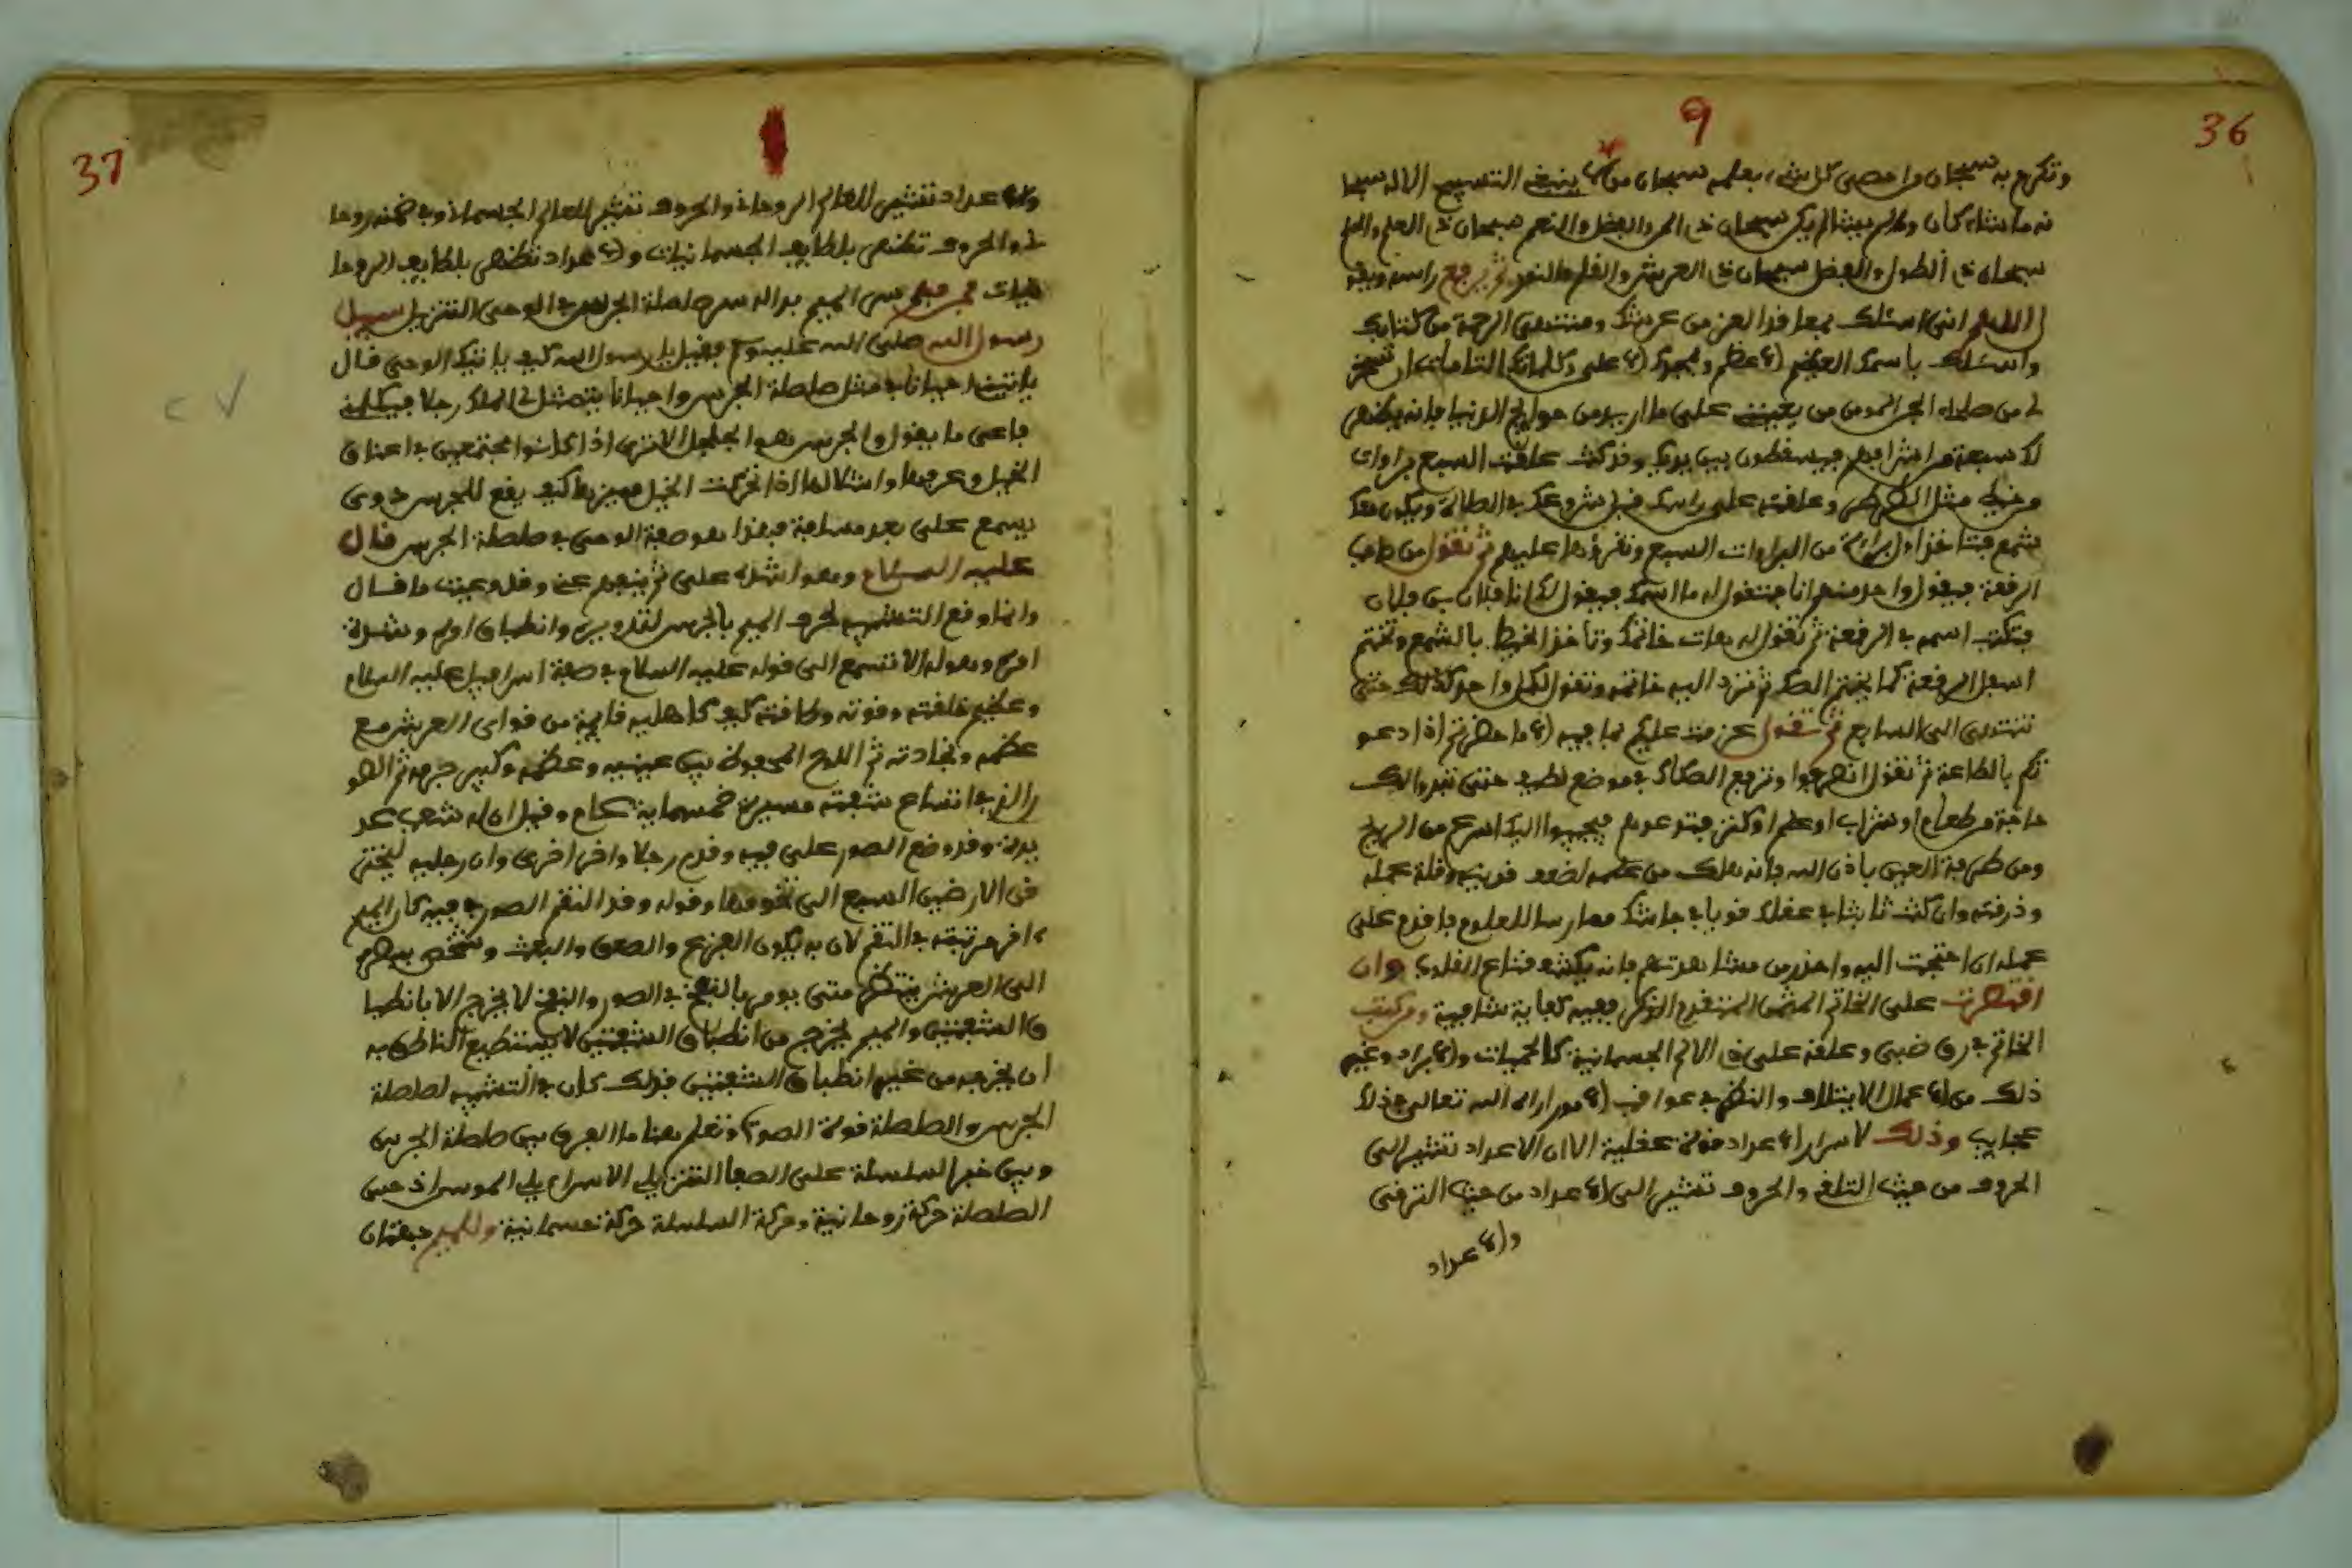 36
9
وتكرم به سبحان من احصى كل شيء بعلمه سبحان من لا ينبغي التسبيح الا له سبحا
نه ما شاء كان وما لم يشا لم يكن سبحان ذي المن والفضل والنعم سبحان ذي العلم والحلم
سبحان ذي الطول والفضل سبحان ذي العرش والقلم والنور ثم يرفع راسه ويقو
ل اللهم اني اسئلك بمعاقد العز من عرشك ومنتهى الرحمة من كتابك
واسئلك باسمك العظيم الاعظم وبمجدك الاعلى وكلماتك التامات ان تسخر
لي من صلحاء الجن المومن من يعينني على ما اريد من حوايج الدنيا فانه يظهر
لك سبعة من اشرافهم فيسقطون بين يديك وقد كنت علقت السبع براوات
وخيط مثل وعلقته على راسك قبل شروعك في الطالة ويكون معك
شمع فتاخذ اول براة من البراوات السبع وتقرؤها عليهم ثم تقول من صاحب
الرقعة فيقول واحد منهم انا فتقول له ما اسمك فيقول لك انا فلان بن فلان
فتكتب اسمه في الرقعة ثم تقول له هات خاتمك وتاخذ الخيط بالشمع وتختم
اسفل الرقعة كما يختم الصك ثم ترد اليه خاتمه وتقول لكل واحد كذلك حتى
تنتهي الى السابع ثم تقول عزمت عليكم بما فيه الا ما حضرتم اذا دعو
تكم بالطاعة ثم تقول انصرفوا وترفع الصكاك في موضع نظيف حتى تبدوا لك
حاجة من طعام او شراب او علم او كنز فتدعوهم فيجيبوا اليك اسرع من الريح
ومن طرفة العين باذن الله فانه هلك من علمه لضعف قريته وقلة عمله
وذرفته وان كنت ثابتا في عقلك قويا في جاشك ممارسا للعلوم فاقدم على
عمله ان احتجت اليه واحذر من مشاهدتهم فانه يكشف قناع القلوب وان
اقتصرت على الخاتم المثمن المتقدم الذكر ففيه كفاية شافية ومن كتب
الخاتم في رق ضبي وعلقه على ذي الالم الجسمانية كالحميات والابراد وغير
ذلك من الاعمال الايتلاف والنظر في عواقب الامور اراه الله تعالى في ذلك
عجايب وذلك لاسرار الاعداد قوة عقلية الا ان الاعداد تشير الى
الحروف من حيث التلفي والحروف تشير الى الاعداد من حيث الترقي
والاعداد
37
والاعداد تشير للعالم الروحاني والحروف تشير للعالم الجسماني وفي ضمنه روحا
ني والحروف تظهر بلطايف الجسمانيات والاعداد تظهر بلطايف الروحا
نيات فمن فهم سر الميم بدا له سر صلصلة الجرس في الوحي التنزيل سيل
رسول الله صلى الله عليه وسلم فقيل يا رسول الله كيف ياتيك الوحي قال
ياتيني احيانا في مثل صلصلة الجرس واحيانا يتمثل لي الملك رجلا فيكلمني
فاعي ما يقول والجرس هو الجلجل الا ترى اذا كانوا مجتمعين في اعناق
الخيل وغيرها وامثالها اذا تحركت الخيل كيف يقع للجرس دوي
يسمع على بعد مسافة فهذا هو صفة الوحي في صلصلة الجرس قال
عليه السلام وهو اشده علي ثم ينفصم عني وقد وعيت ما قال
وانما وقع التشبيه لحرف الميم بالجرس لتدويره وانطباق اوله وشدة
اخره وهوله الا تسمع الى قوله عليه السلام في صفة اسرافيل عليه السلام
وعظيم خلقته وقوته وطاقته كيف كاهله قايمة من قوايم العرش مع
عظمه ثم اللوح المحفوظ بين عينيه وعظمه وكبر جرمه ثم الصو
ر الذي اتساع شفته مسيرة خمسماية عام وقيل ان له شعب عد
يدة وقد وضع الصور على فيه وقدم رجلا واخر اخرى وان رجليه لتخر
قن الارضين السبع الى تخومها وقوله وقد التقم الصور في فيه كان الميم
اخر مرتبة في التقم لان به يكون الفزع والصعق والبعث وشخص ببصره
الى العرش ينتظر متى يومر بالنفخ في الصور والنفخ لا يخرج الا بانطبا
ق الشفتين والميم يخرج من انطباق الشفتين لا يستطيع الناطق به
ان يخرجه من غير انطباق الشفتين فذلك كان في التشبيه لصلصلة
الجرس والصلصلة قوة الصوت وتعلم هنا ما الفرق بين صلصلة الجرس
وبين خبر السلسلة على الصفا التنزيل الاسرافيلي الموسى اذ هي
الصلصلة حركة روحانية وحركة السلسلة حركة جسمانية وللميم صفتان